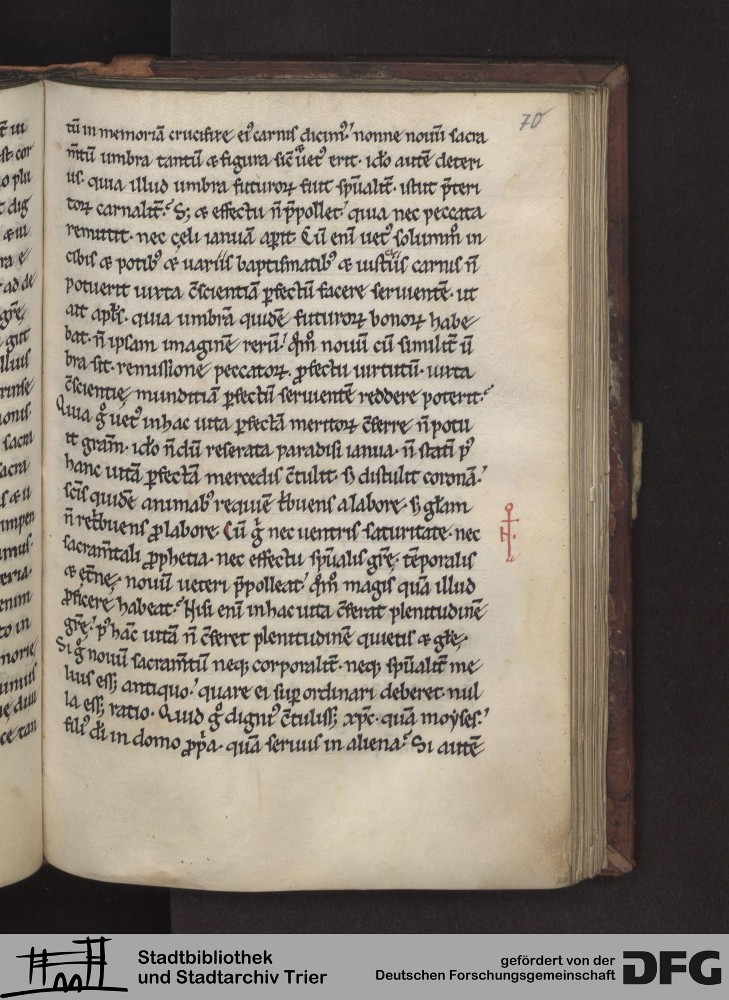 70
tū in memoriā crucifixe ei' carnis dicim'. nonne nouū sacra
m̄tū umbra tantū & figura sic̄ uet' erit. ido autē deteri
us. quia illud umbra futuroꝝ fuit sp̄ualit̄. istut p̄teri
toꝝ carnalit̄. S; & effectu n̄ p̄pollet. quia nec peccata
remittit. nec cęli ianuā apit Cū eni uet' solummō in
cibis & potib' & uariis baptismatib' & iusticiis carnis n̄
potuerit iuxta c̄scientiā pfectū facere seruientē. ut
ait apl̄s. quia umbrā quidē futuroꝝ bonoꝝ habe
bat. n̄ ipsam imaginē rerū. qm̄ nouū cū similit̄ ū
bra sit. remissione peccatoꝝ. pfectu uirtutū. iuxta
c̄scientię munditiā pfectū seruientē reddere poterit.
Quia g° uet' in hac uita pfectā meritoꝝ c̄ferre n̄ potu
it gram̄. ido n̄dū reserata paradisi ianua. n̄ statī p'
hanc uitā pfectā mercedis c̄tulit. s; distulit coronā.
sc̄is quidē animab' requiē t̄buens a labore. s; gl̄am
n̄ ret̄buens p labore. Cū g° nec uentris saturitate. nec
sacram̄tali pphetia. nec effectu sp̄ualis grę̄. tēporalis
& et̄nę. nouū ueteri p̄polleat. qm̄ magis quā illud
pficere habeat. Nisi eni in hac uita c̄ferat plenitudinē
grę̄. p' hāc uitā n̄ c̄feret plenitudinē quietis & gl̄ę.
Si g° nouū sacram̄tū neq; corporalit̄. neq; sp̄ualit̄ me
lius ess; antiquo. quare ei sup ordinari deberet. nul
la ess; ratio. Quid g° digni' c̄tuliss; xp̄c. quā moyses.
fili' dī in domo ppa. quā seruus in aliena. Si autē
Stadtbibliothek
und Stadtarchiv Trier
gefördert von der
Deutschen Forschungsgemeinschaft
DFG